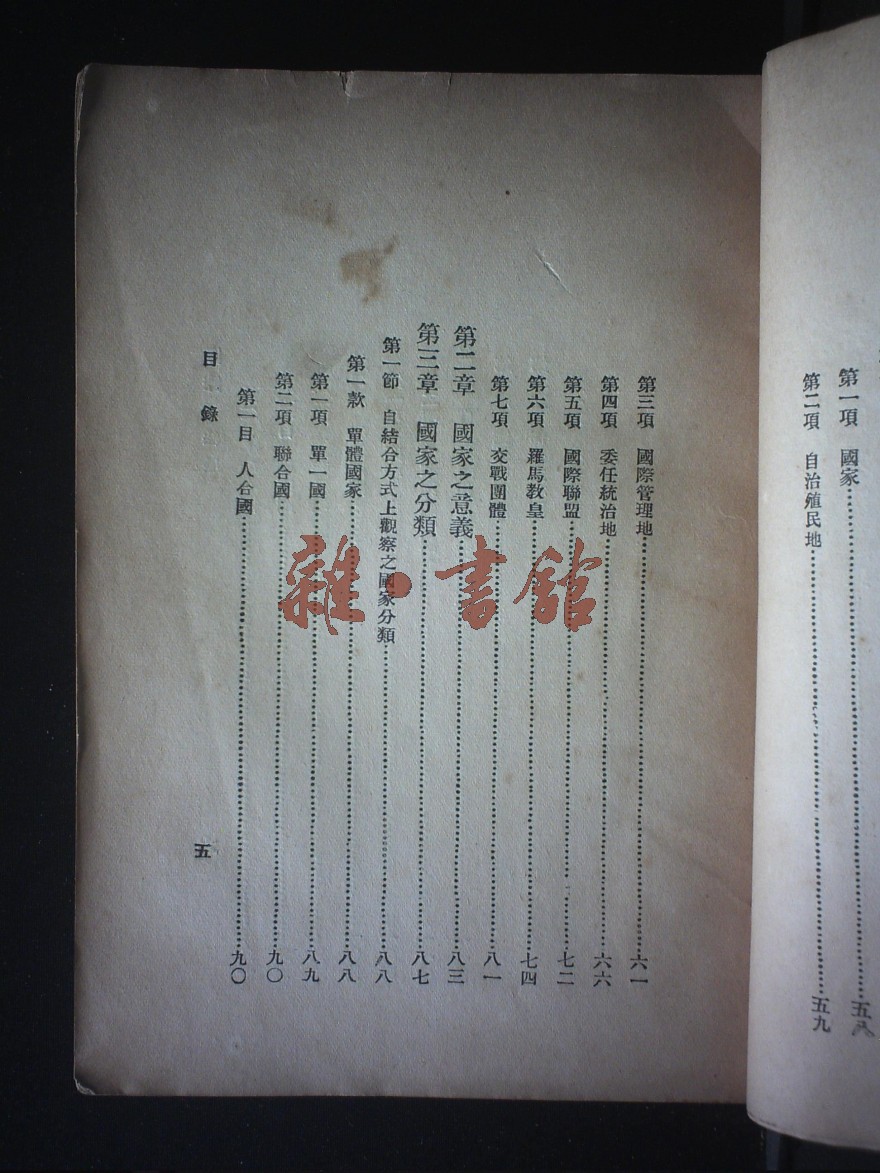 第一項　國家……五八
第二項　自治殖民地……五九
第三項　國際管理地……六一
第四項　委任統治地……六六
第五項　國際聯盟……七二
第六項　羅馬教皇……七四
第七項　交戰團體……八一
第二章　國家之意義……八三
第三章　國家之分類……八七
第一節　自結合方式上觀察之國家分類……八八
第一款　單體國家……八八
第一項　單一國……八九
第二項　聯合國……九〇
第一目　人合國……九〇
目錄
五
雜·書館